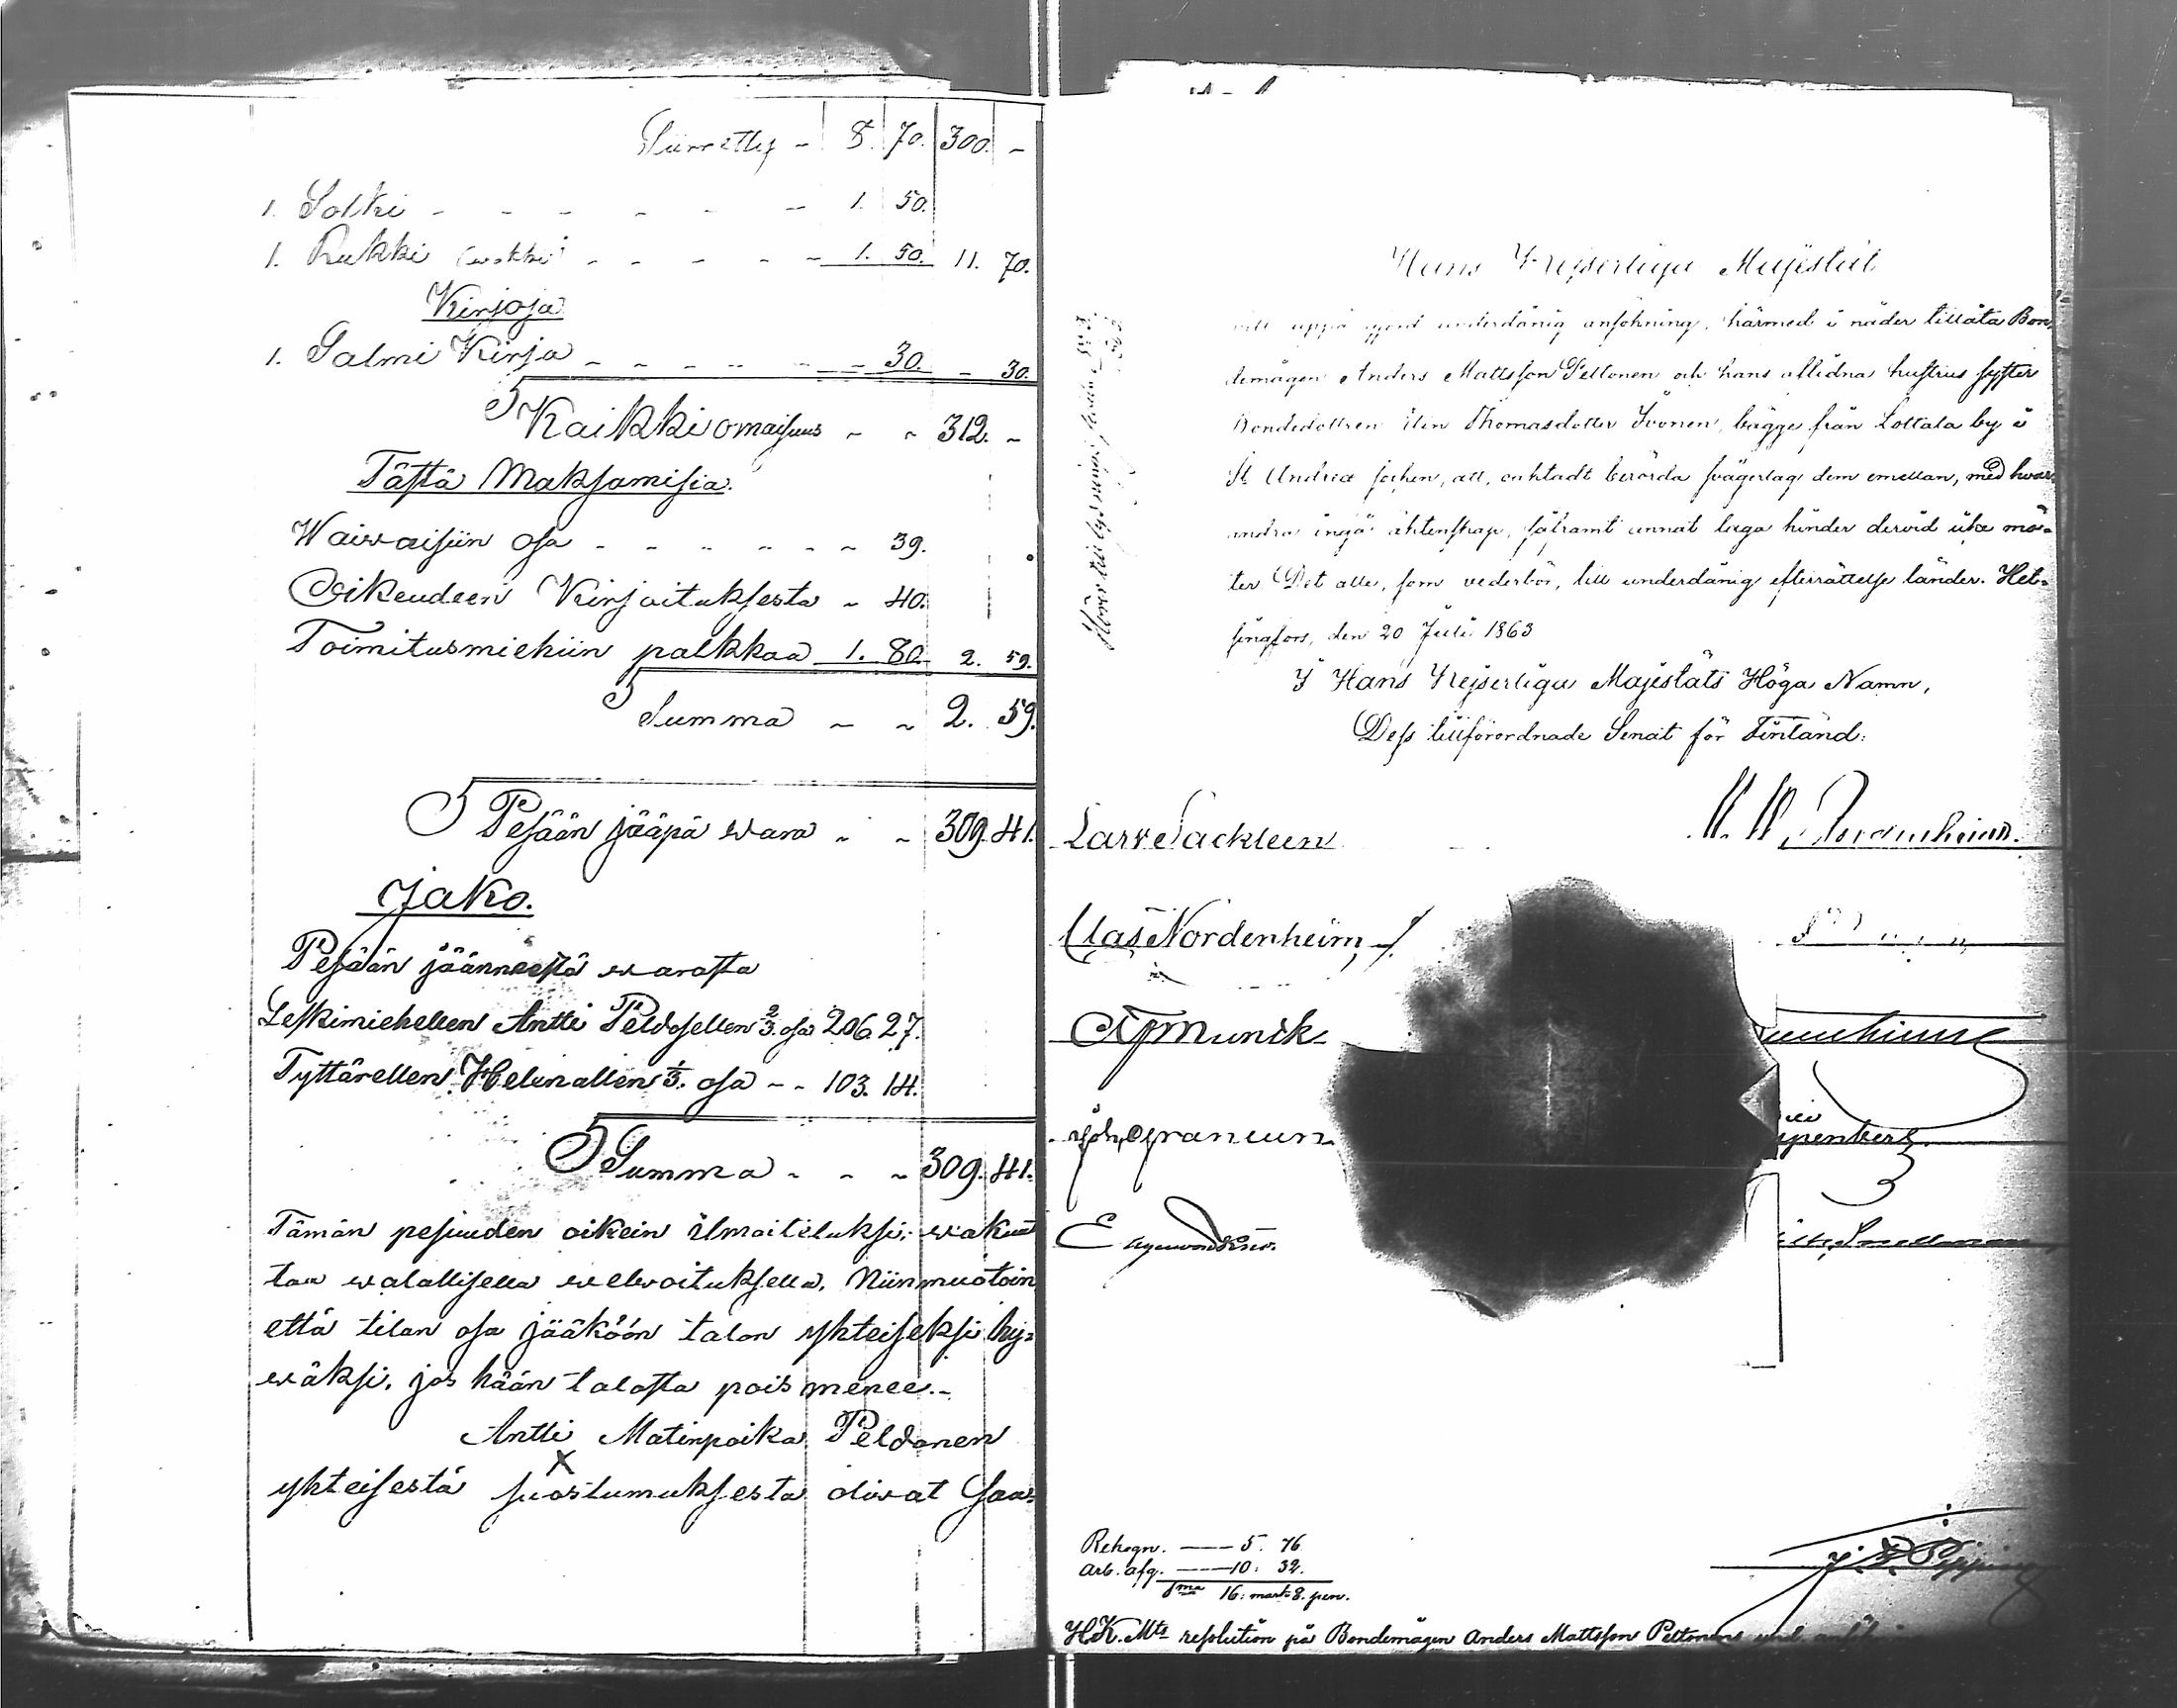 Siirretty - 8. 70. 300. -
1. Solki - - - - - - 1. 50.
1. Rukki - - - - - 1. 50. 11. 70.
Kirjoja
1. Salmi Kirja - - - - - 30. - 30.
Kaikki omaisuus - - 312. -
Tästä Maksamisia.
Waiwaisiin osa - - - - - - 39.
Oikeudeen Kirjoituksesta - 40.
Toimitusmiehiin palkkaa 1. 80. 2. 59.
Summa - - 2. 59.
Pesään jääpä wara - - 309. 41.
Jako.
Pesään jäänneestä warasta
Leskimiehellen Antti Peldosellen 2/3. osa 206. 27.
Tyttärellen Helenallen 1/3. osa - - 103. 14.
Summa - - - 309. 41.
Tämän pesuuden oikein ilmoitetuksi, wakuut
taa walallisella welwoituksella. Niinmuotoin
että tilan osa jääköön talon yhteiseksi hy=
wäksi, jos hään talosta pois menee.-
Antti Matinpoika Peldonen
X
yhteisestä suostumuksesta oliwat Saa=
Hans Kejserliga Majestät
vill uppå gjord underdånig ansökning, härmed i nåder tillåta Bon,
demågen Anders Mattsson Peltonen och hans aflidna hustrus syster
Bondedottren Elin Thomasdotter Ivonen, bägge från Lottala by i
St Andreæ socken, att, oaktadt berörda svågerlag dem emellan, med hvar,
andra ingå äktenskap, såframt annat laga hinder dervid icke mö=
ter. Det alle, som vederbör, till underdånig efterrättelse länder. Hel=
singfors, den 20 Julii 1863
I Hans Kejserliga Majestäts Höga Namn,
Dess tillförordnade Senat för Finland:
Lars Sackleen
Clas Nordenheim
Munck
Joh. Granlun
penberg
Snellman
J. P. Pipping
Rekogn. — 5. 76
Arb. afg. — 10: 32.
S:ma 16: mark 8. pen.
H.K. Mts resolution på Bondemågen Anders Mattsson Peltonens